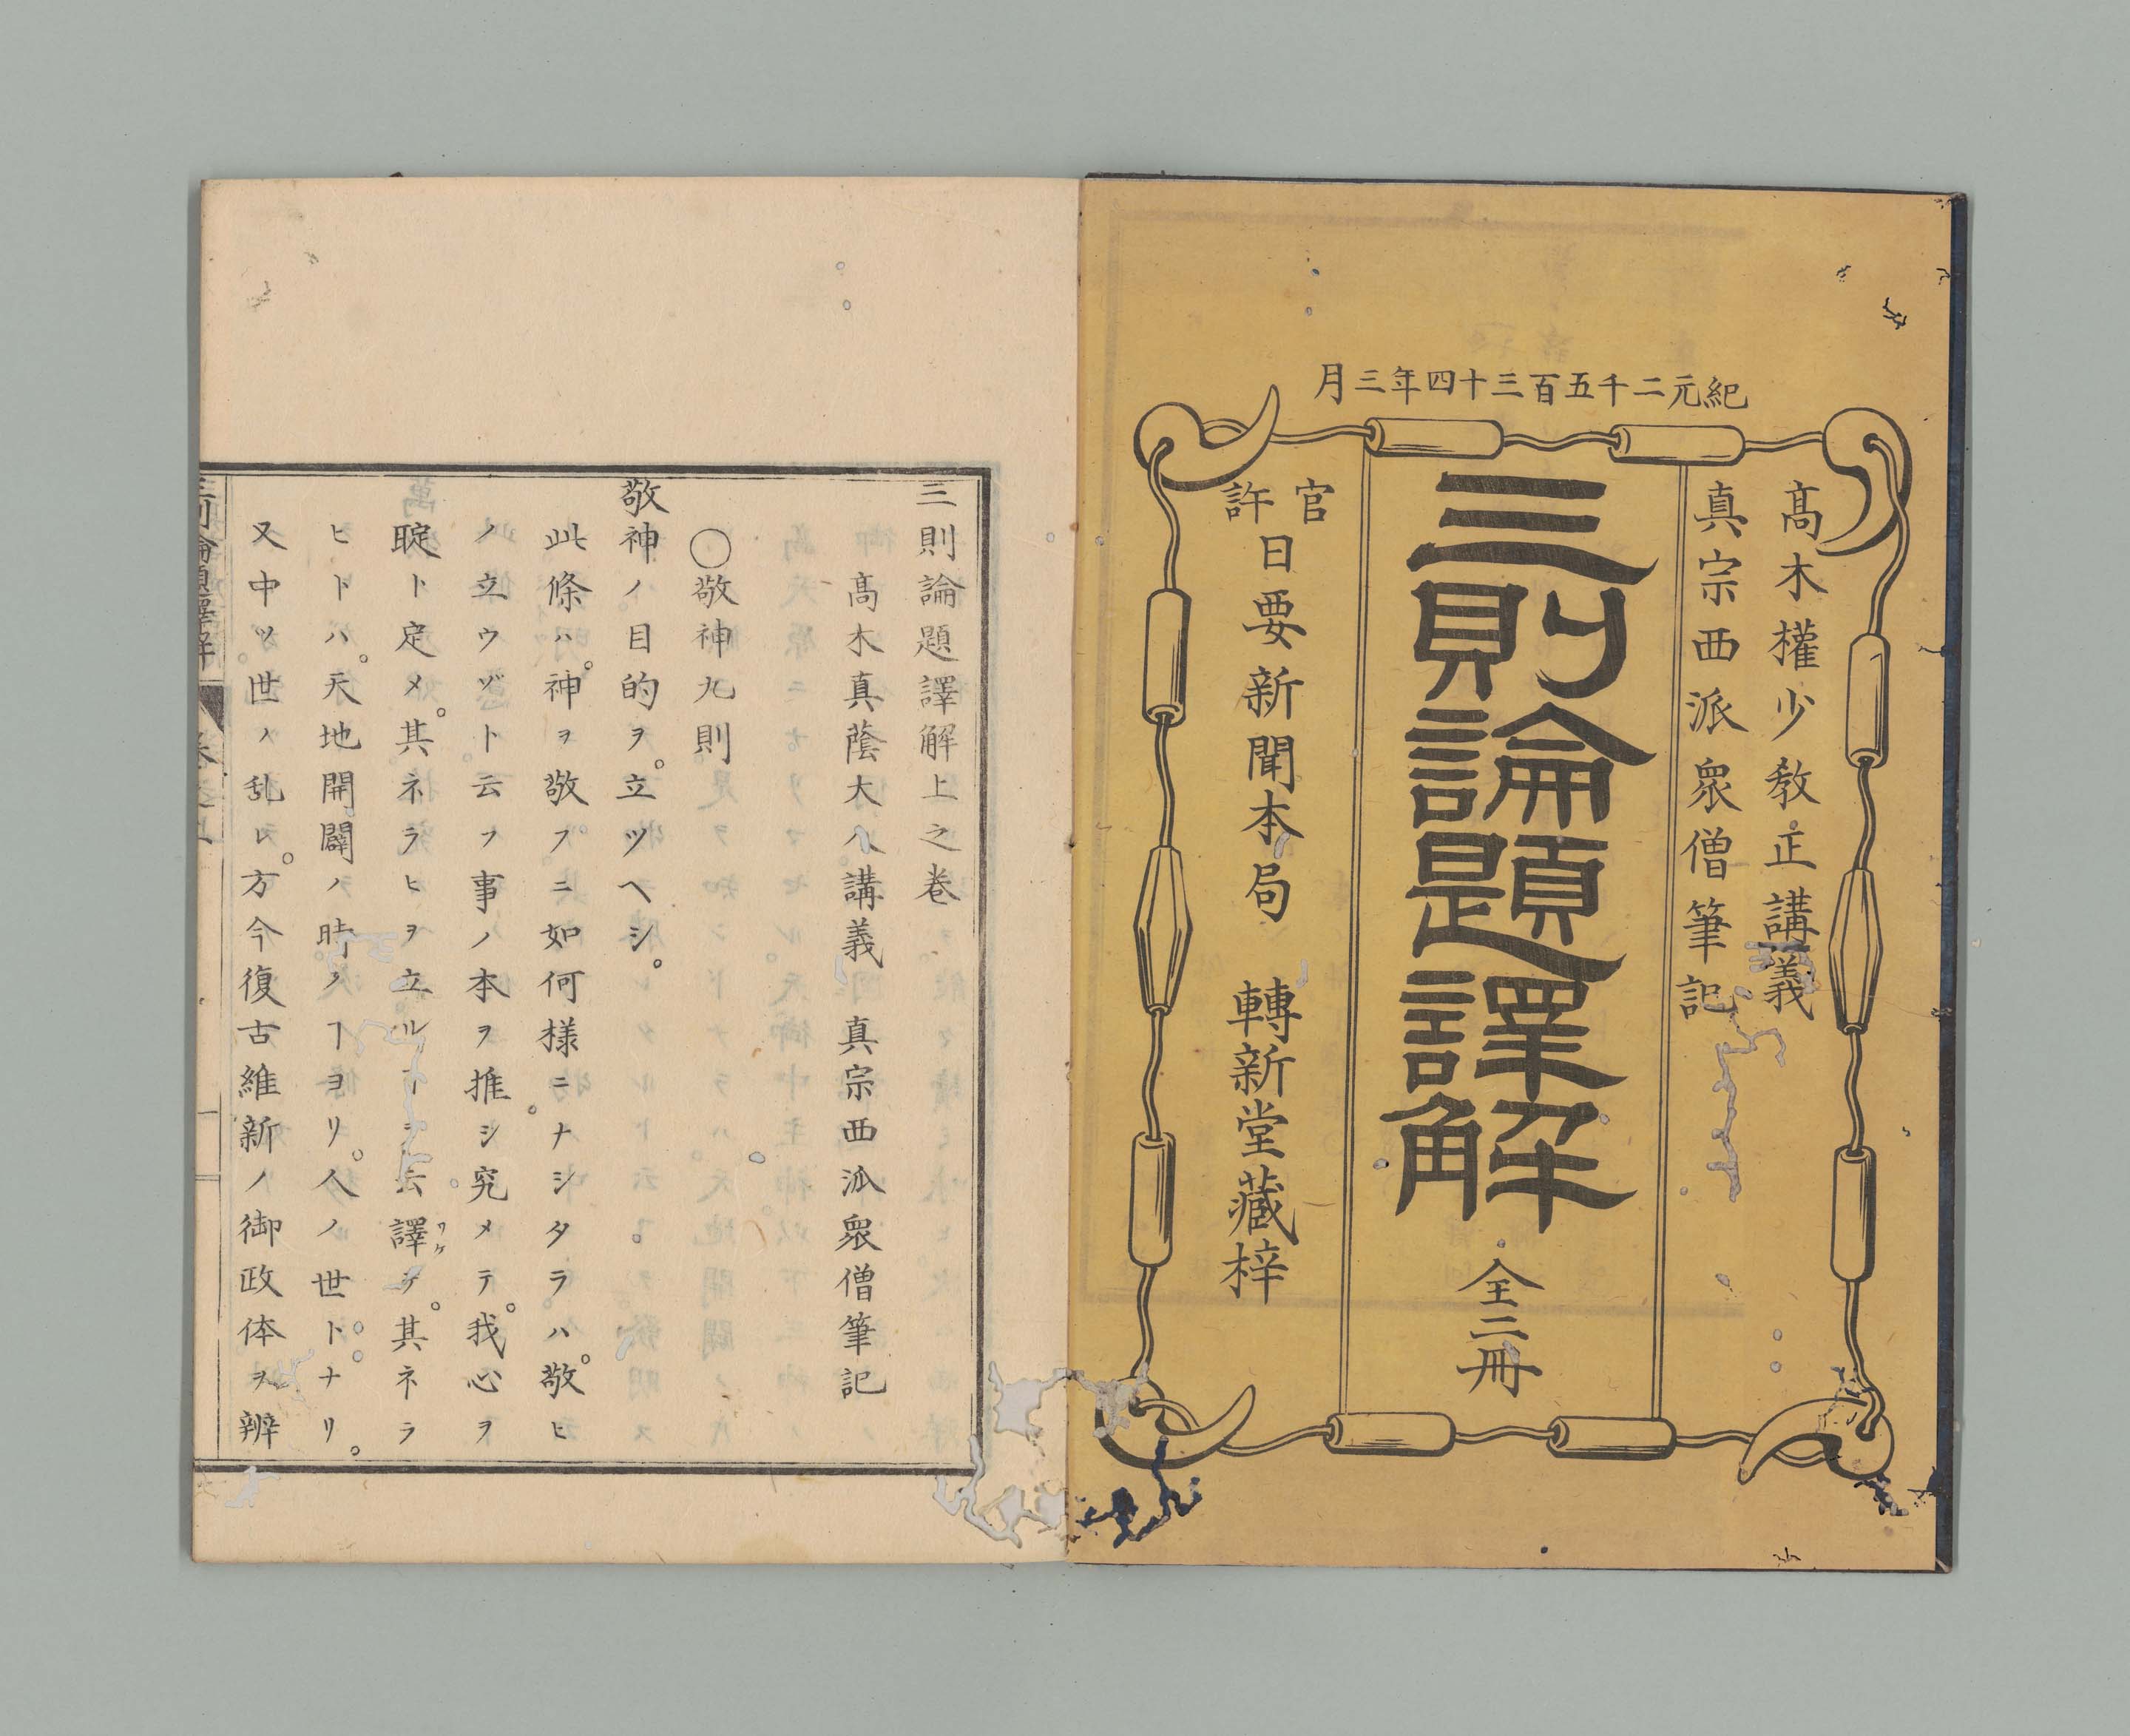 紀元二千五百三十四年三月
髙木權少教正講義
真宗西派衆僧筆記
三則論題譯解
全二冊
官許
日要新聞本局　轉新堂藏梓
三則論題譯解上之巻
髙木真蔭大人講義　真宗西派衆僧筆記
〇敬神九則
敬神ノ目的ヲ。立ツヘシ。
此條ハ。神ヲ敬フニ如何様ニ。ナシタラハ。敬ヒ
ノ立ウゾト云フ事ノ本ヲ推シ究メテ。我心ヲ
聢ト定メ。其ネラヒヲ立ルヿヲ云譯ケ。其ネラ
ワケ
ヒトハ。天地開闢ノ時ノヿヨリ。人ノ世ト。ナリ。
又中ツ世ノ乱レ。方今復古維新ノ御政体ヲ辨
三則論題譯解　巻之上